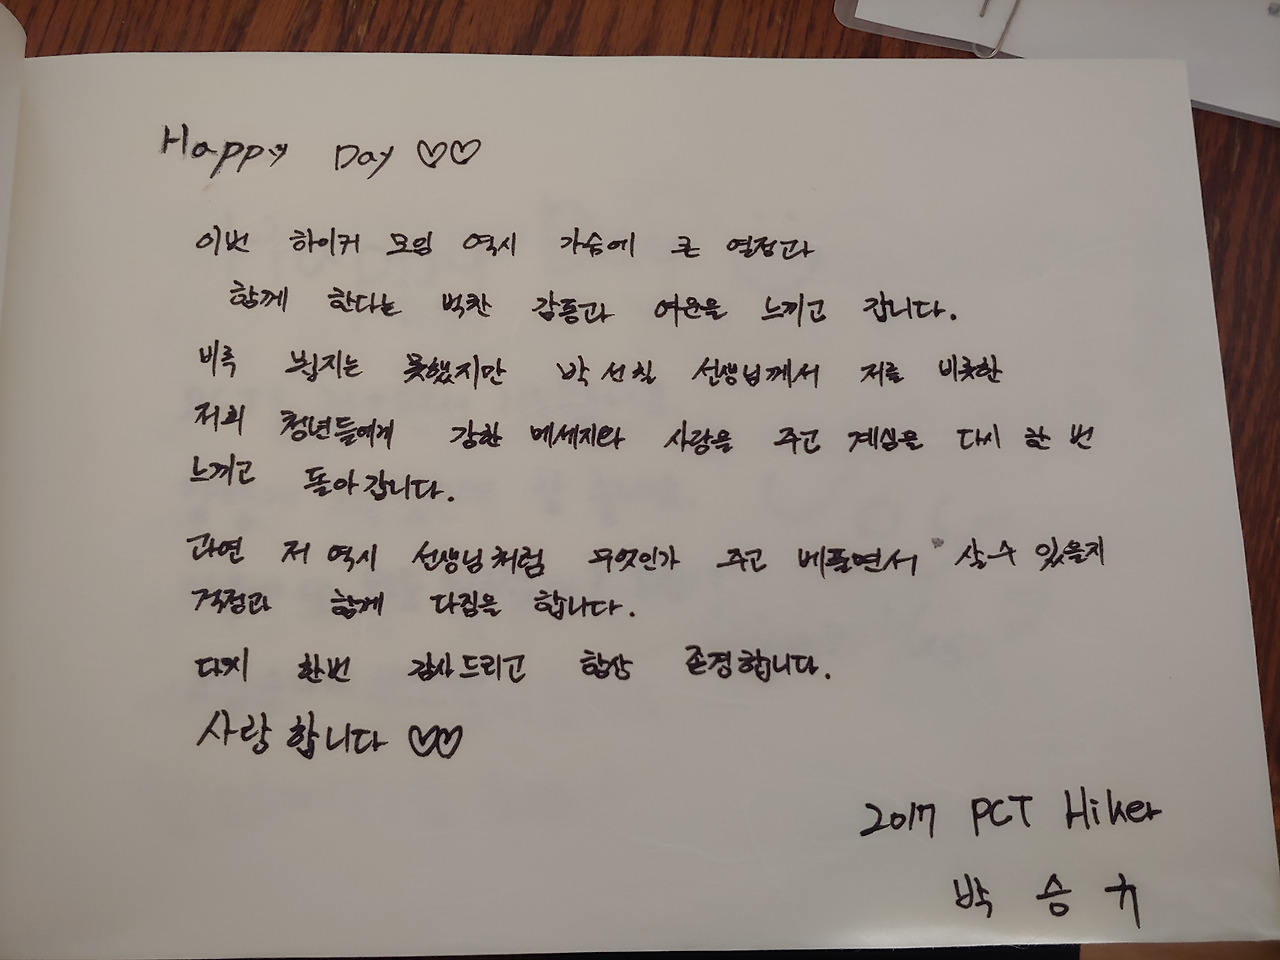 Happy Day ♡♡
이번 하이커 모임 역시 가슴에 큰 열정과
함께 한다는 벅찬 감동과 여운을 느끼고 갑니다.
비록 뵙지는 못했지만 박선칠 선생님께서 저를 비롯한
저희 청년들에게 강한 메세지와 사랑을 주고 계심을 다시 한 번
느끼고 돌아갑니다.
과연 저 역시 선생님처럼 무엇인가 주고 베풀면서 살 수 있을지
걱정과 함께 다짐을 합니다.
다시 한번 감사드리고 항상 존경합니다.
사랑합니다 ♡♡
2017 PCT Hiker
박승규